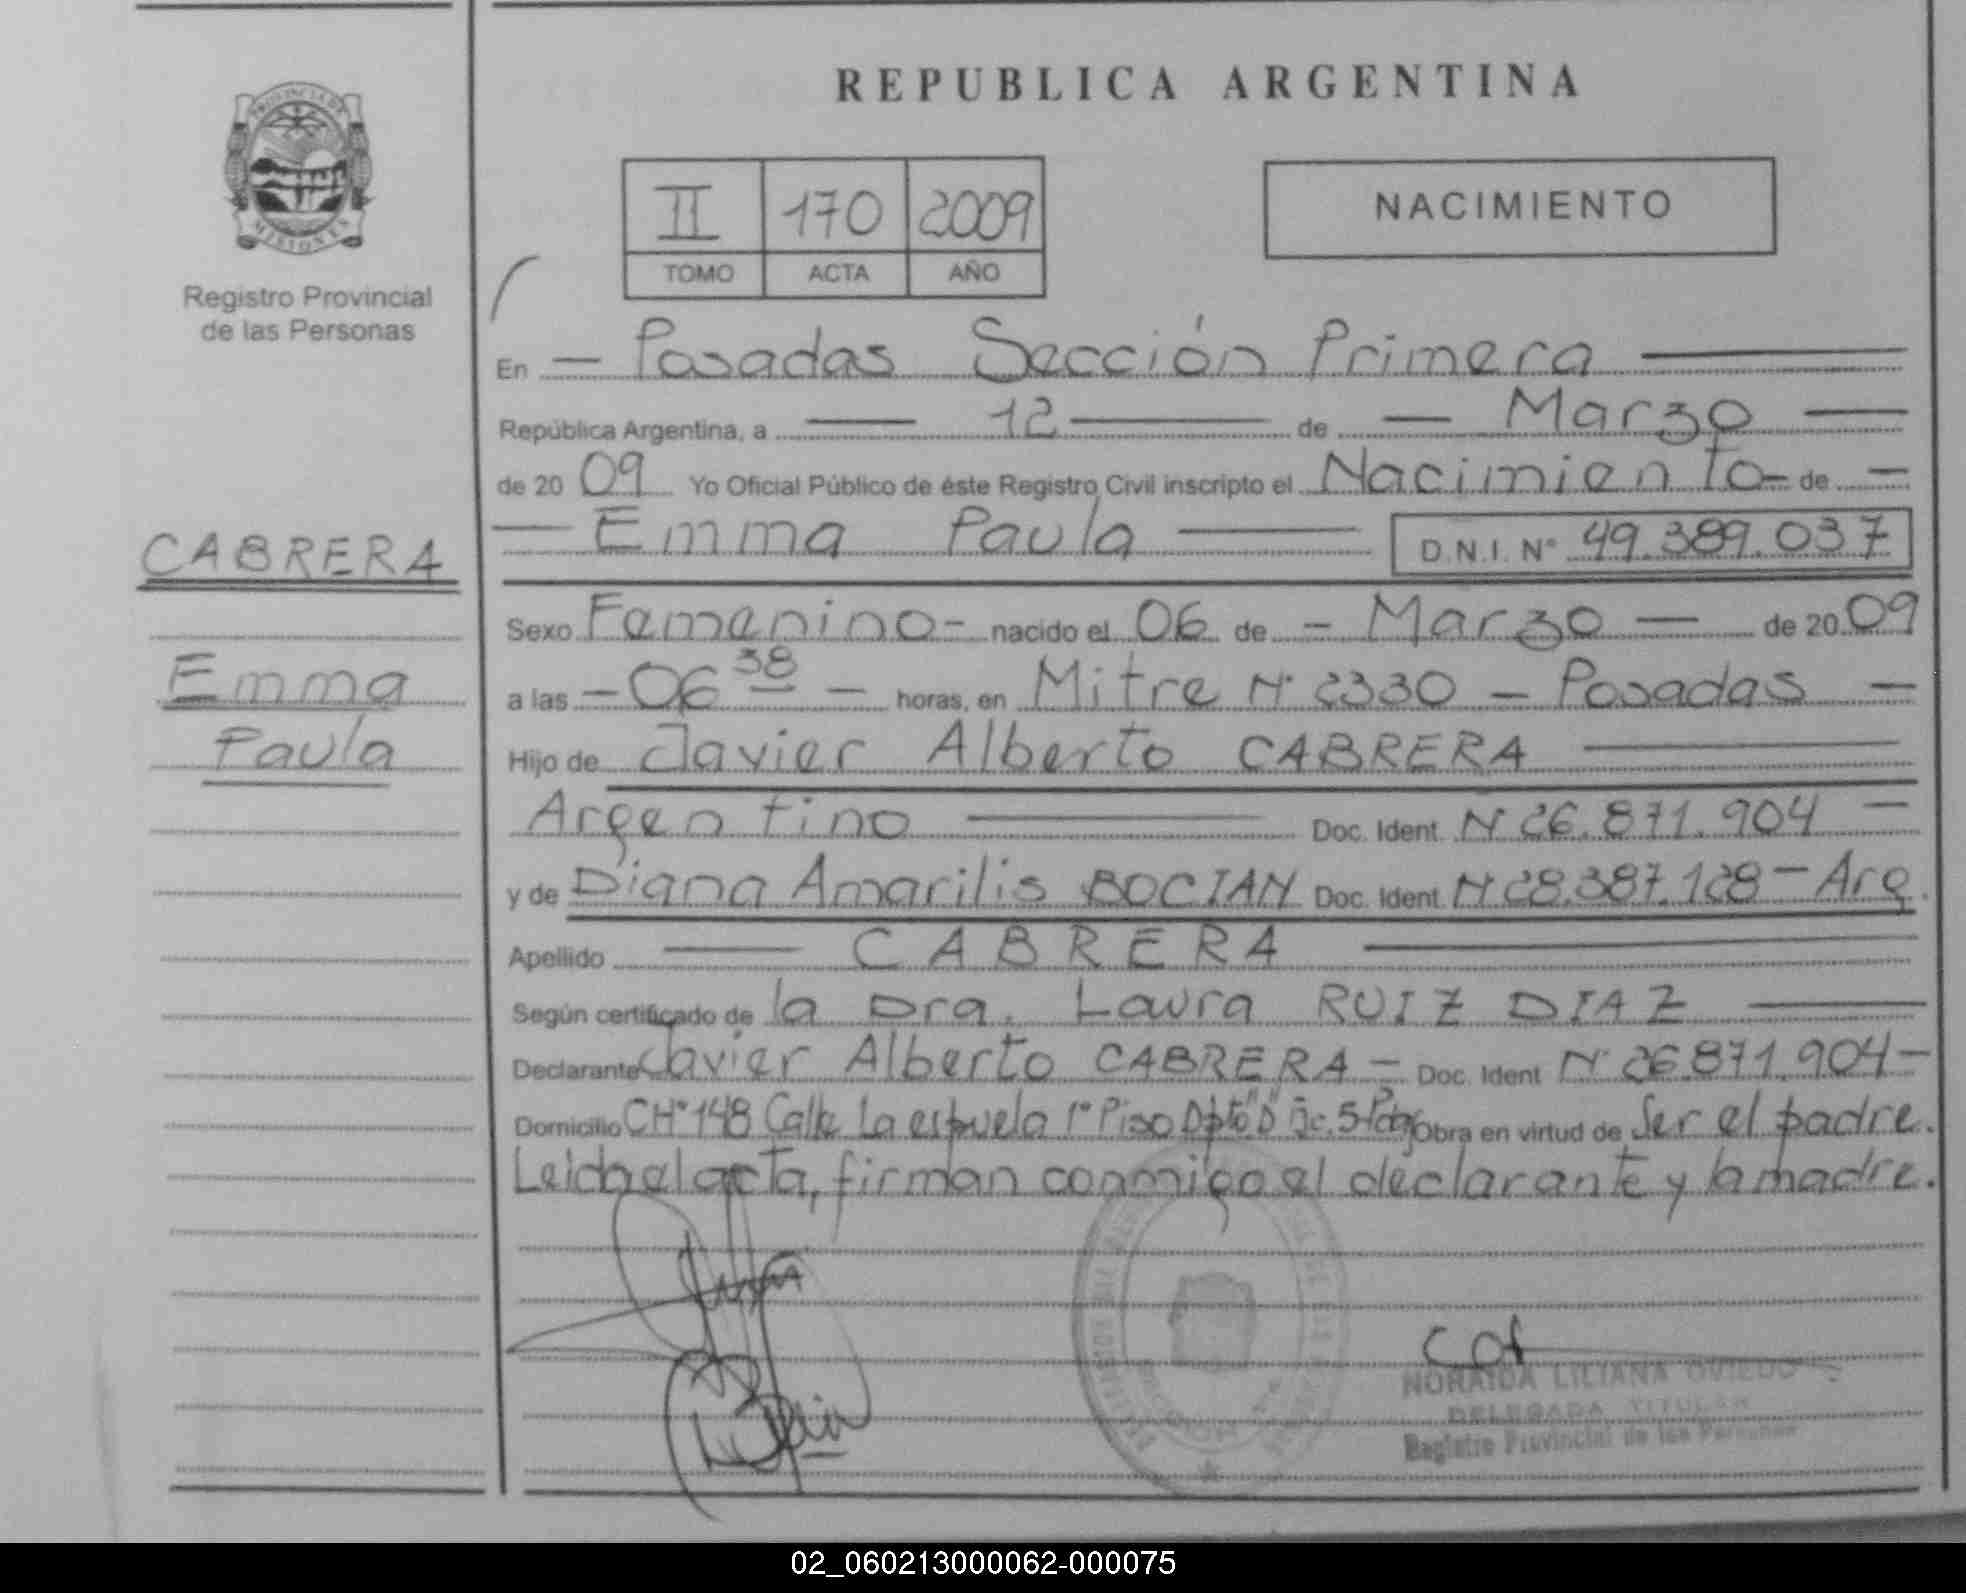 REPUBLICA ARGENTINA
PROVINCIA DE
MISIONES
Registro Provincial
de las Personas
II 170 2009
TOMO ACTA AÑO
NACIMIENTO
En — Posadas Sección Primera —
República Argentina, a — 12 — de — Marzo —
de 20 09 Yo Oficial Público de éste Registro Civil inscripto el Nacimiento — de —
— Emma Paula — D.N.I. N° 49.389.037
CABRERA
Emma
Paula
Sexo Femenino - nacido el 06 de - Marzo — de 20 09
a las — 06 38 — horas, en Mitre N° 2330 — Posadas —
Hijo de Javier Alberto CABRERA —
Argentino — Doc. Ident. N° 26.871.904 —
y de Diana Amarilis BOCIAN Doc. Ident. N° 28.387.128 — Arg.
Apellido — CABRERA —
Según certificado de la Dra. Laura RUIZ DIAZ —
Declarante Javier Alberto CABRERA — Doc. Ident N° 26.871.904 —
Domicilio CH° 148 Calle La espuela 1° Piso Dpto "D" Obra en virtud de Ser el padre.
Leida el acta, firman conmigo el declarante y la madre.
NORAIDA LILIANA OVIEDO
DELEGADA TITULAR
Registro Provincial de las Personas
02_060213000062-000075